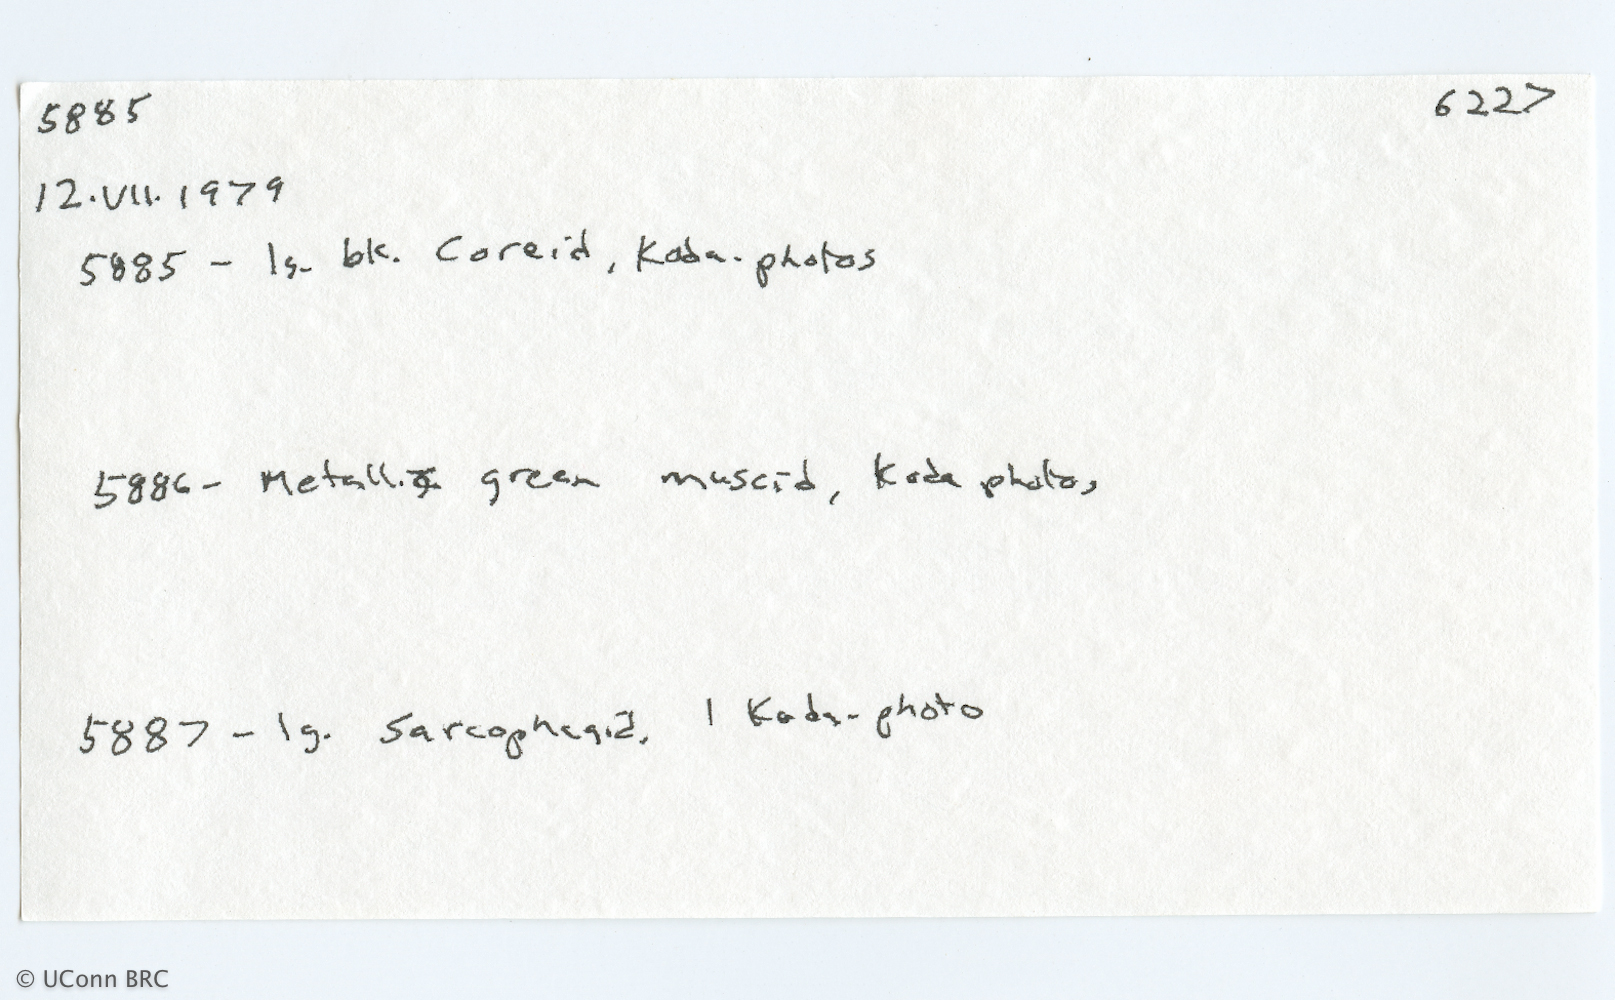 5885 6227
12.VII.1979
5885 - lg. bk. Coreid, Koda-photos
5886 - Metallic green muscid, Koda photos
5887 - lg. Sarcophagid, 1 Koda-photo
© UConn BRC